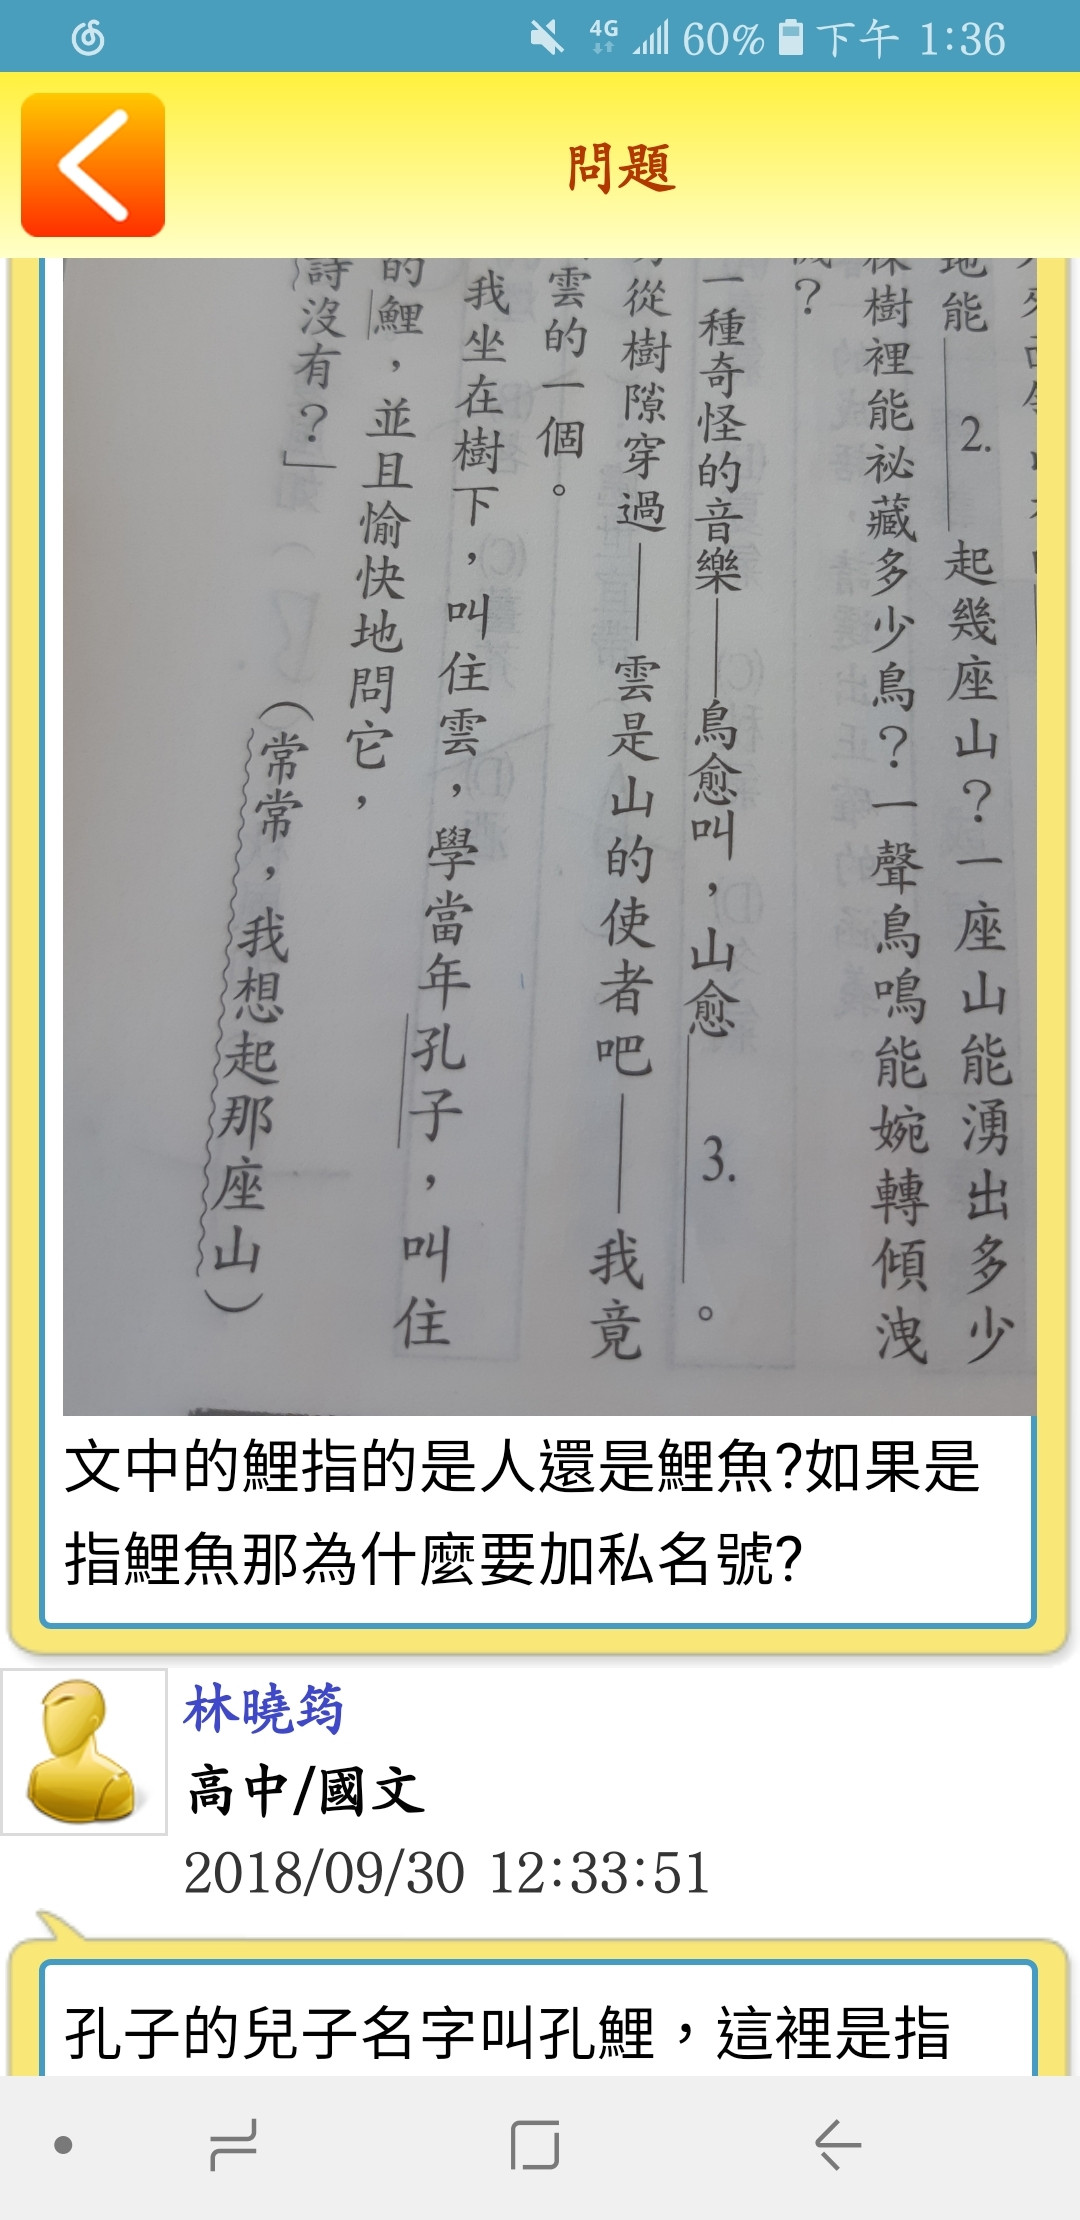 4G 60% 下午 1:36
問題
地能 2. 起幾座山？一座山能湧出多少
樹裡能祕藏多少鳥？一聲鳥鳴能婉轉傾洩
？
一種奇怪的音樂——鳥愈叫，山愈 3. 。
從樹隙穿過——雲是山的使者吧——我竟
雲的一個。
我坐在樹下，叫住雲，學當年孔子，叫住
的鯉，並且愉快地問它，
詩沒有？」
（常常，我想起那座山）
文中的鯉指的是人還是鯉魚?如果是
指鯉魚那為什麼要加私名號?
林曉筠
高中/國文
2018/09/30 12:33:51
孔子的兒子名字叫孔鯉，這裡是指